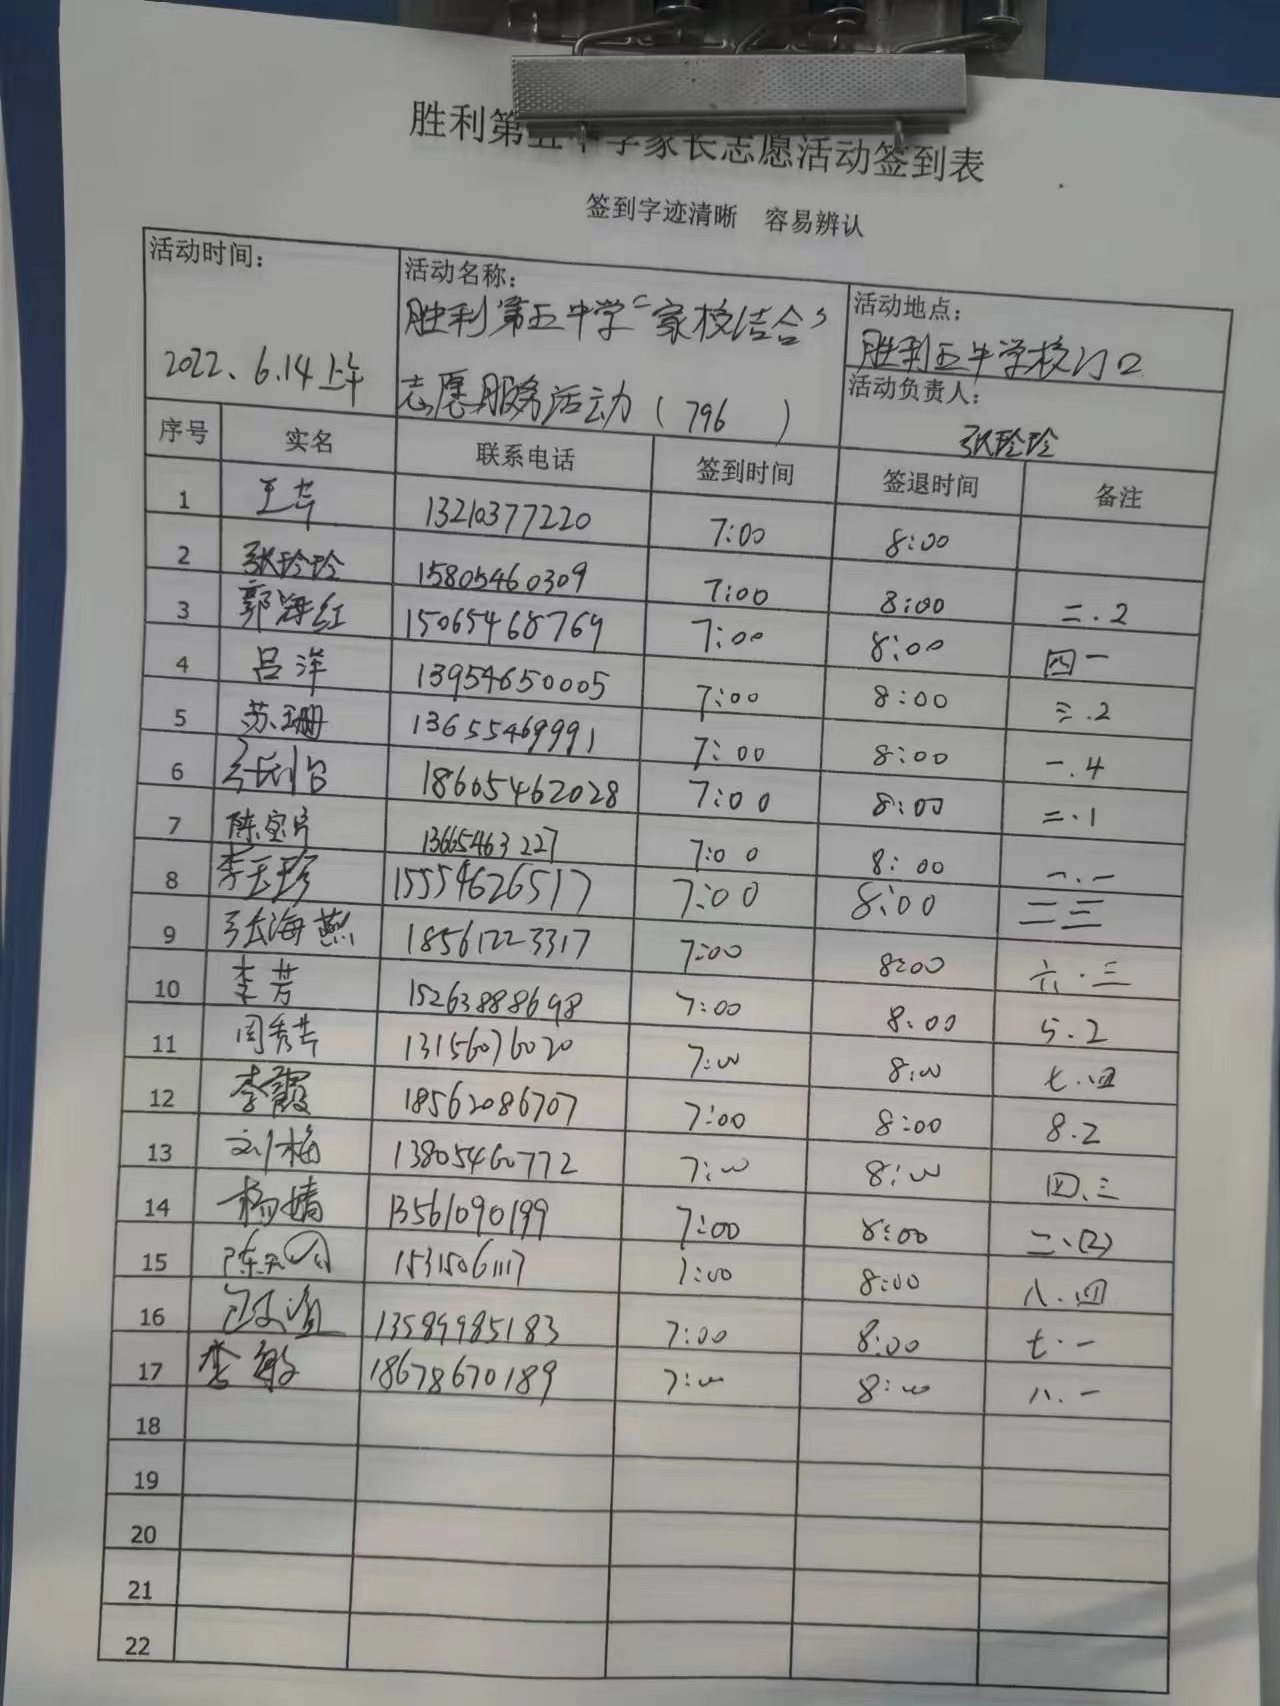 胜利第五中学家长志愿活动签到表
签到字迹清晰 容易辨认
活动时间：
2022、6.14上午
活动名称：
胜利第五中学“家校结合”
志愿服务活动（796 ）
活动地点：
胜利五中学校门口
活动负责人：
张玲玲
序号 实名 联系电话 签到时间 签退时间 备注
1 王芹 13210377220 7:00 8:00
2 张玲玲 15805460309 7:00 8:00 二.2
3 郭海红 15065468769 7:00 8:00 四一
4 吕洋 13954650005 7:00 8:00 三.2
5 苏珊 13655469991 7:00 8:00 一.4
6 18605462028 7:00 8:00 二.1
7 陈宝 13665463227 7:00 8:00 一.一
8 李玉珍 15554626517 7:00 8:00 二三
9 张海燕 18561223317 7:00 8:00 六.三
10 李芳 15263888698 7:00 8:00 5.2
11 周秀芹 13156076020 7:00 8:00 七.四
12 李霞 18562086707 7:00 8:00 8.2
13 刘梅 13805460772 7:00 8:00 四.三
14 杨婧 13561090199 7:00 8:00 二、(2)
15 陈 15315061117 7:00 8:00 八.四
16 13589985183 7:00 8:00 七.一
17 李敏 18678670189 7:00 8:00 八.一
18
19
20
21
22